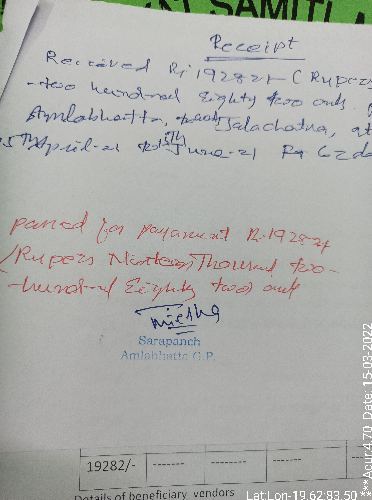 SAMITI
Receipt
Received Rs 19282/- (Rupees
two hundred Eighty two only
Amlabhatta, Jalachatra, at
April-21 to June-21
passed for payment Rs. 19282/-
(Rupees Nineteen Thousand two
hundred Eighty two only
Sarapanch
Amlabhatta G.P.
19282/- ------- ------- -------
Details of beneficiary vendors
Lat Lon-19.62:83.50
***Acur:4.70 Date: 15-03-2022